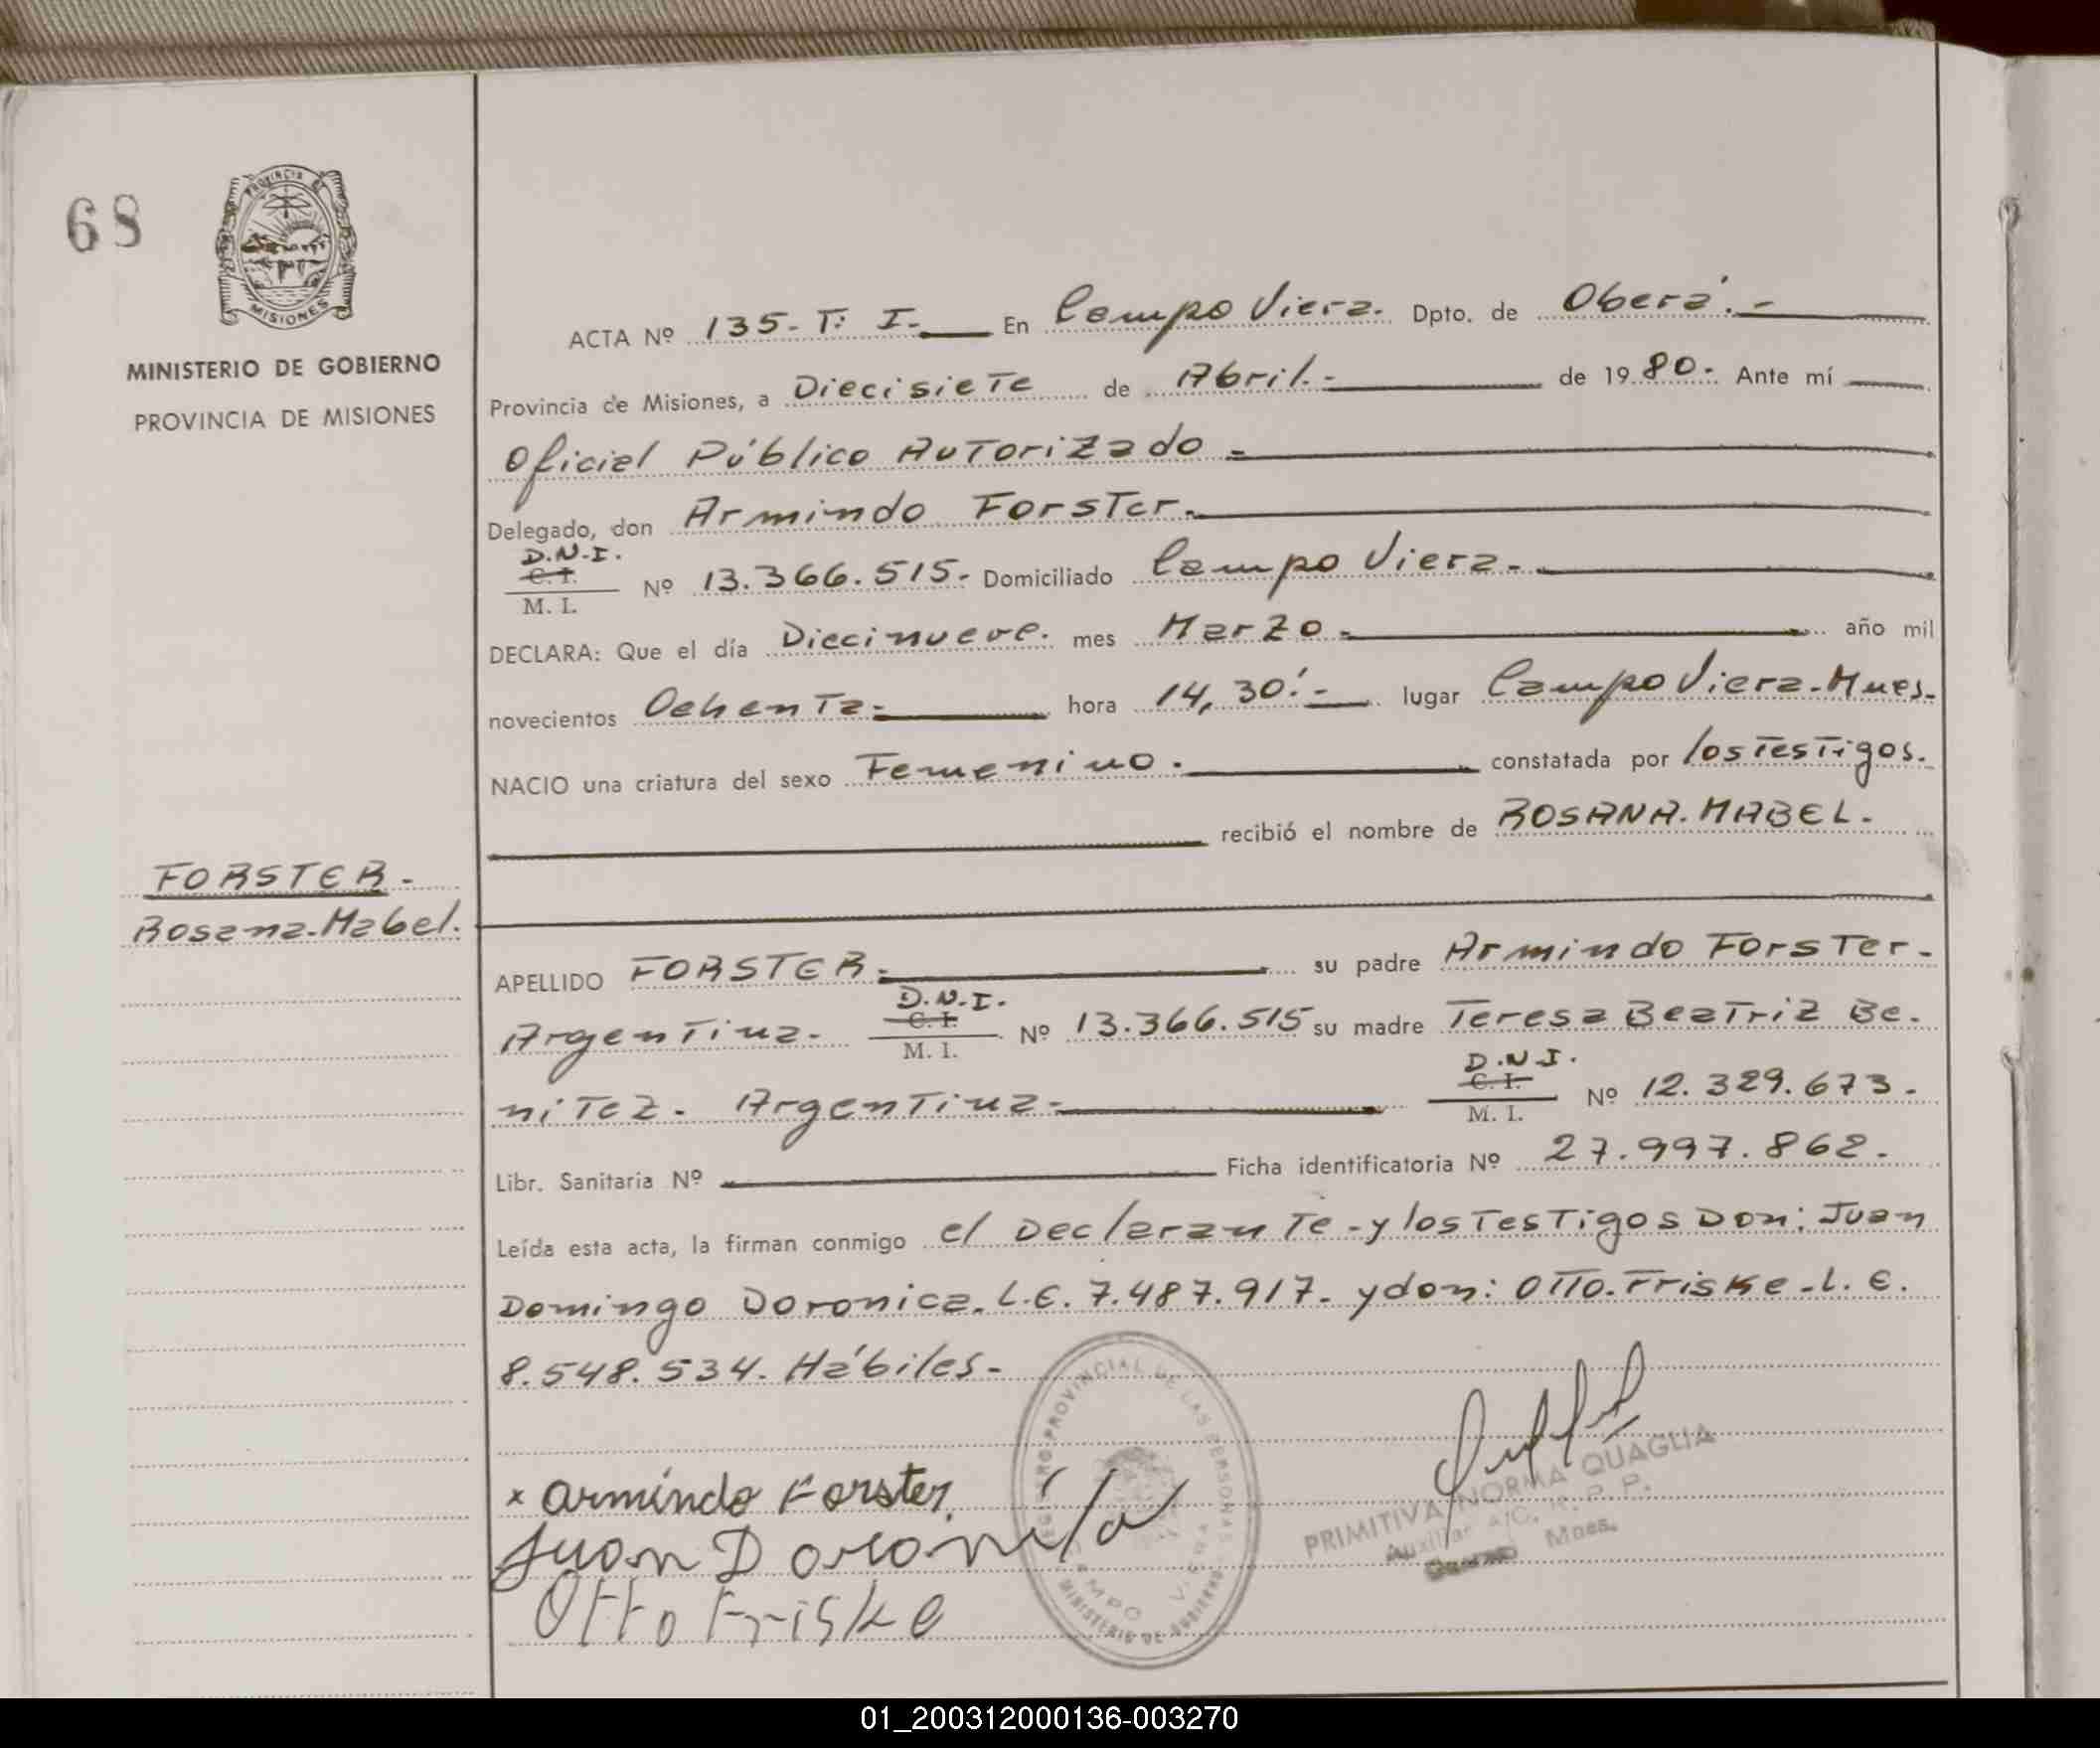 68
PROVINCIA DE
MISIONES
MINISTERIO DE GOBIERNO
PROVINCIA DE MISIONES
ACTA Nº 135.T: I.- En Campo Viera. Dpto. de Oberá.-
Provincia de Misiones, a Diecisiete de Abril.- de 1980.- Ante mí
Oficial Público Autorizado -
Delegado, don Armindo Forster.-
D.N.I.
C.I.
M. I.
Nº 13.366.515.- Domiciliado Campo Viera.-
DECLARA: Que el día Diecinueve. mes Marzo.- año mil
novecientos Ochenta.- hora 14,30'.- lugar Campo Viera-Mnes.
NACIO una criatura del sexo Femenino. constatada por los Testigos.
recibió el nombre de ROSANA.MABEL.
FORSTER.-
Rosana.Mabel.
APELLIDO FORSTER.- su padre Armindo Forster.
Argentina.- D.N.I. C.I. M. I. Nº 13.366.515 su madre Teresa Beatriz Be.
nitez. Argentina.- D.N.I. C.I. M. I. Nº 12.329.673.
Libr. Sanitaria Nº Ficha identificatoria Nº 27.997.862.
Leída esta acta, la firman conmigo el Declarante-y los Testigos Don: Juan
Domingo Doronica. L.E. 7.487.917.- y don: Otto.Friske.-L. E.
8.548.534. Hábiles.-
x Armindo Forster.
Juan Doronica
Otto Friske
REGISTRO PROVINCIAL DE LAS PERSONAS
CAMPO VIERA
MINISTERIO DE GOBIERNO
PRIMITIVA NORMA QUAGLIA
Auxiliar A/C. R. P. P.
Mnes.
01_200312000136-003270